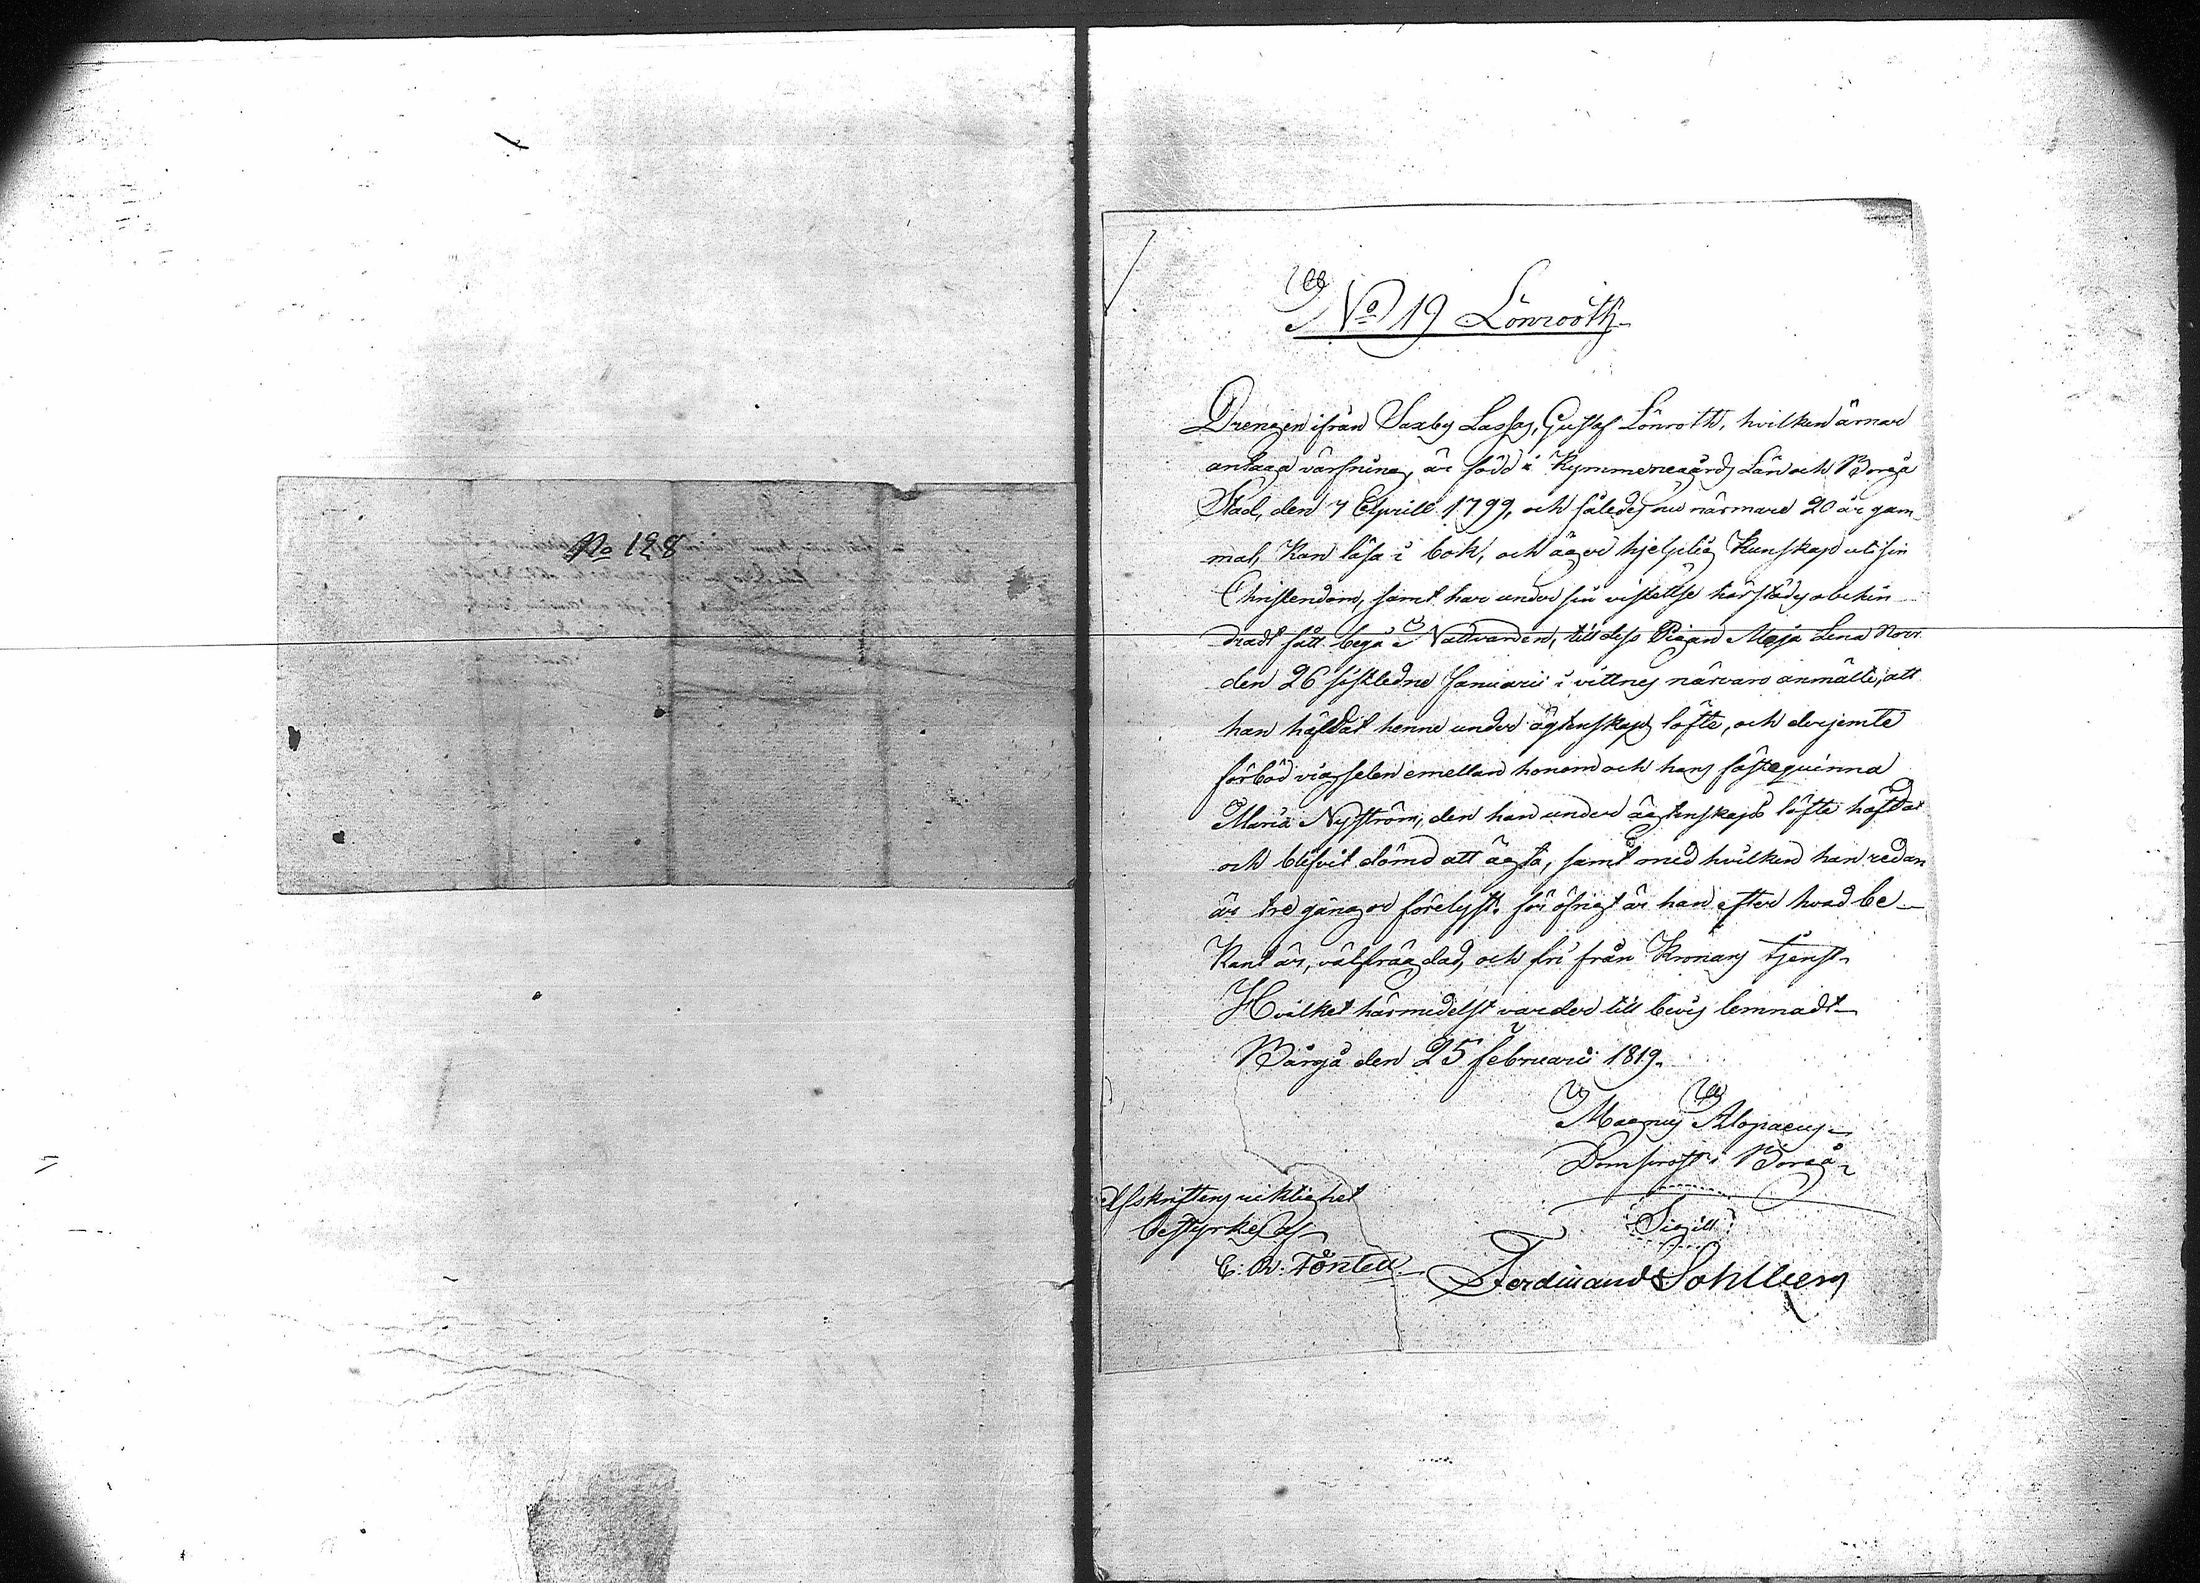 No 128
No 19 Lönrooth
Drengen ifrån Saxby Lassas, Gustaf Lönroth, hvilken ärnar
antaga värfning, är född i Kymmenegårds Län och Borgå
Stad, den 7 Aprill 1799, och således nu närmare 20 år gam-
mal, Kan läsa i bok, och äger hjelplig Kunskap uti sin
Christendom, samt har under sin vistelse härstädes obehin-
dradt fått begå Nattvarden, till dess Pigan Maja Lena Norr
den 26 sistledne Januarii i vittnes närvaro anmälte, att
han häfdat henne under ägtenskaps löfte, och derjemte
förböd vigselen emellan honom och hans fästequinna
Maria Nyström, den han under ägtenskaps löfte häfdat
och blifvit dömd att ägta, samt med hvilken han redan
är tre gånger förelyst. för öfrigt är han efter hvad be-
kant är, välfrägdad, och fri från Kronans tjenst.
Hvilket härmedelst varder till bevis lemnadt.
Börgå den 25 februarii 1819.
Magnus Alopaeus
Domprost i Borgå
Sigill
Afskriftens riktighet
bestyrkes af
C: W: Fontell
Ferdinand Sohlberg